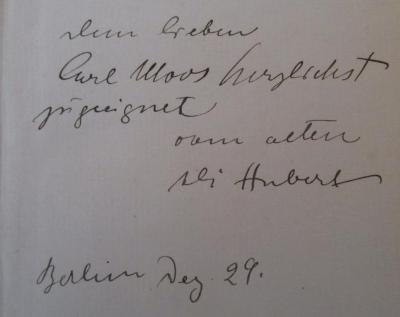 Dem lieben
Carl Moos herzlichst
zugeeignet
vom alten
Ali Hubert
Berlin Dez 29.